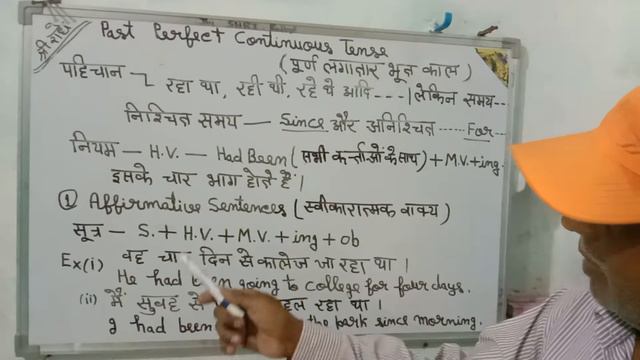 श्री राधे
Past Perfect Continuous Tense
(पूर्ण लगातार भूत काल)
पहिचान - रहा था, रही थी, रहे थे आदि - - - | लेकिन समय - -
निश्चित समय — Since और अनिश्चित ...... For -
नियम — H.V. — Had Been (सभी कर्त्ताओं के साथ) + M.V. + ing.
इसके चार भाग होते हैं।
① Affirmative Sentences (स्वीकारात्मक वाक्य)
सूत्र — S. + H.V. + M.V. + ing + ob
Ex(i) वह चार दिन से कालेज जा रहा था।
He had been going to college for four days.
(ii) मैं सुबह से रहा था।
I had been the park since morning.